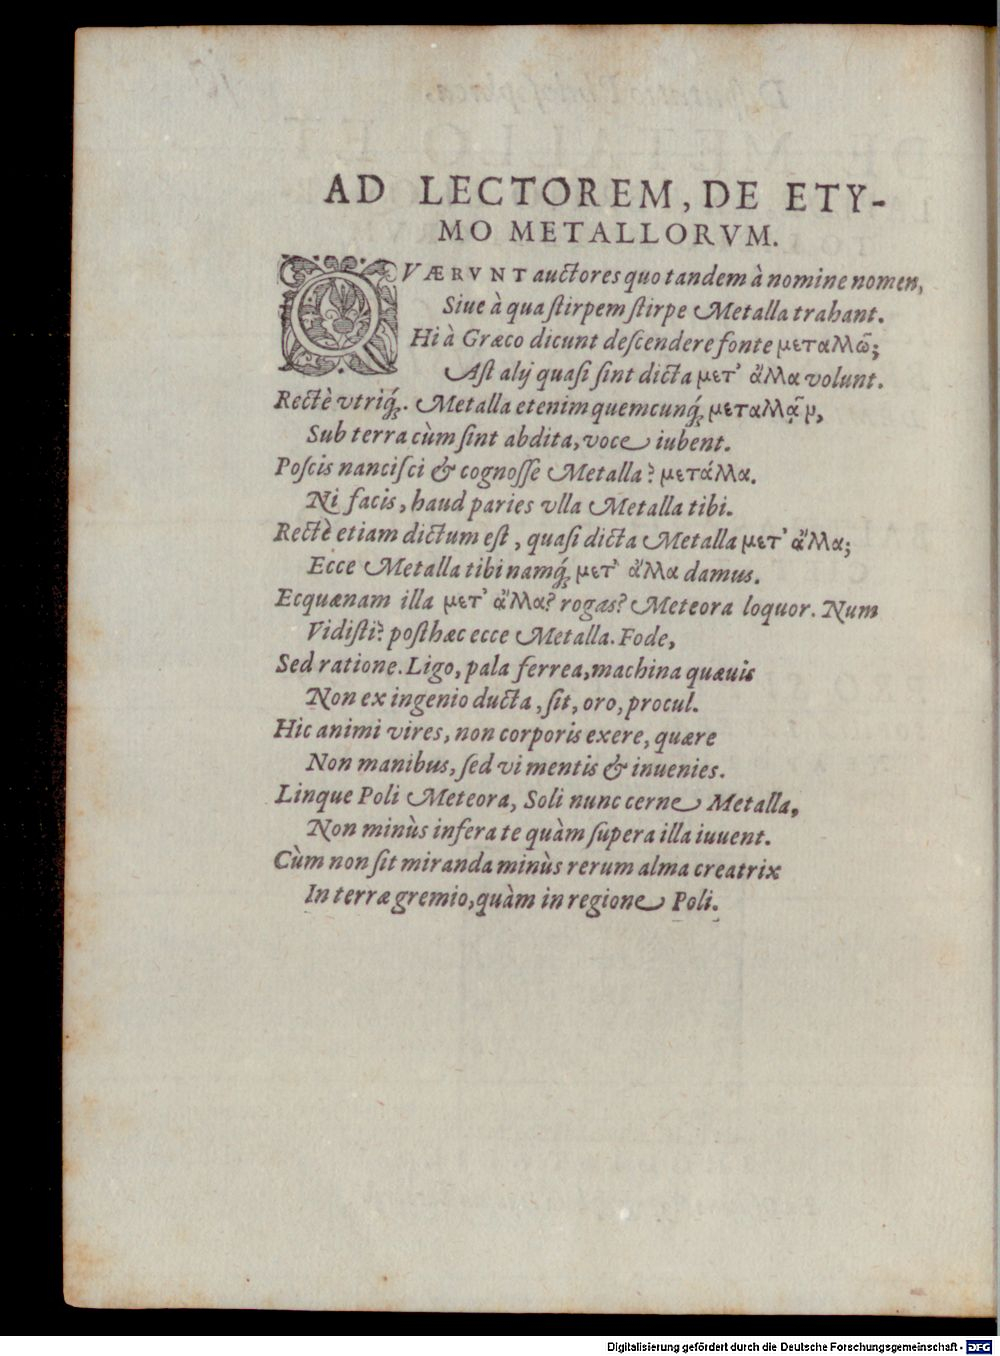 AD LECTOREM, DE ETY-
MO METALLORVM.
QVÆRVNT auctores quo tandem à nomine nomen,
Siue à qua ſtirpem ſtirpe Metalla trahant.
Hi à Græco dicunt deſcendere fonte μεταλλῶ;
Aſt alij quaſi ſint dicta μετ' ἄλλα volunt.
Rectè vtriq́;. Metalla etenim quemcunq́; μεταλλᾷν,
Sub terra cùm ſint abdita, voce iubent.
Poſcis nanciſci & cognoſſe Metalla? μετάλλα.
Ni facis, haud paries vlla Metalla tibi.
Rectè etiam dictum eſt, quaſi dicta Metalla μετ' ἄλλα;
Ecce Metalla tibi namq́; μετ' ἄλλα damus.
Ecquænam illa μετ' ἄλλα? rogas? Meteora loquor. Num
Vidiſti? poſthæc ecce Metalla. Fode,
Sed ratione. Ligo, pala ferrea, machina quæuis
Non ex ingenio ducta, ſit, oro, procul.
Hic animi vires, non corporis exere, quære
Non manibus, ſed vi mentis & inuenies.
Linque Poli Meteora, Soli nunc cerne Metalla,
Non minùs infera te quàm ſupera illa iuuent.
Cùm non ſit miranda minùs rerum alma creatrix
In terræ gremio, quàm in regione Poli.
Digitalisierung gefördert durch die Deutsche Forschungsgemeinschaft - DFG